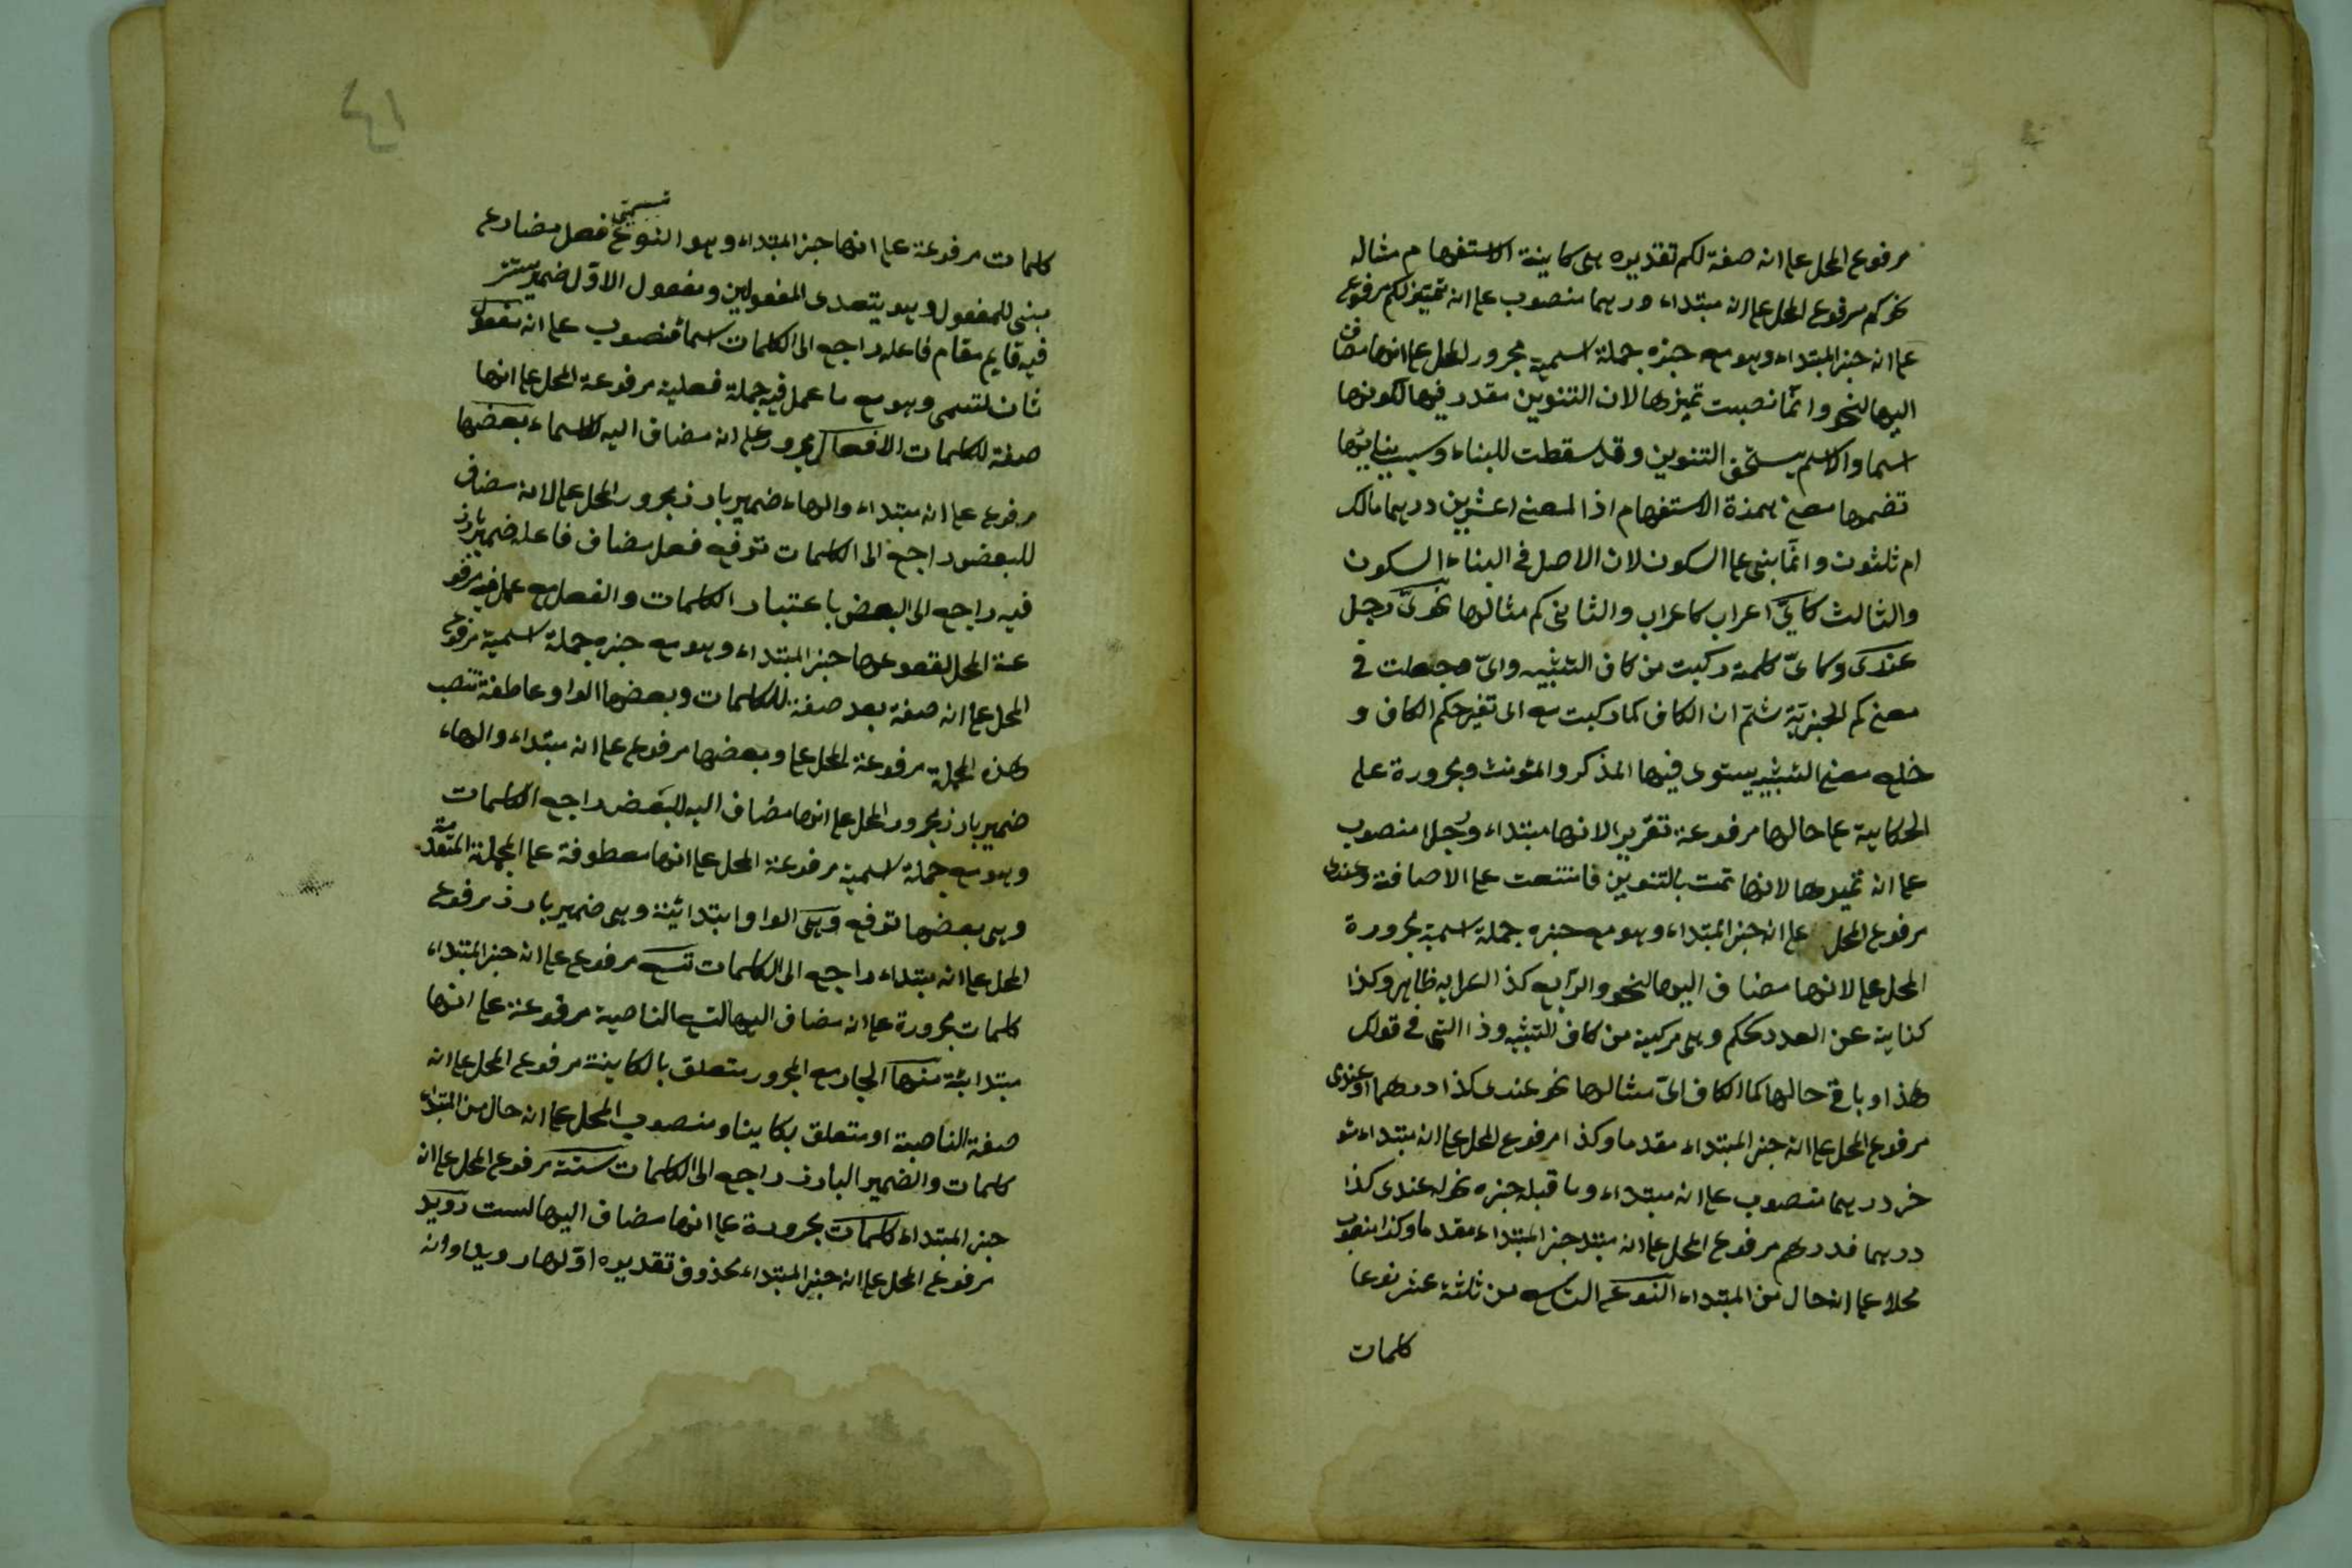 مرفوع المحل على انه صفة لكم تقديره هى كاينة الاستفهام مثاله
نحو كم مرفوع المحل على انه مبتداء درهما منصوب على انه تمييز لكم مرفوع
على انه خبر المبتداء وهو مع خبره جملة اسمية مجرور المحل على انها مضاف
اليها لنحو وانما نصبت تميزها لان التنوين مقدر فيها لكونها
اسما والاسم يستحق التنوين وقد سقطت للبناء وسبب بنايئها
تضمنها معنى همزة الاستفهام اذا لمعنى اعشرين درهما مالك
ام ثلثون وانما بنى على السكون لان الاصل فى البناء السكون
والثالث كايّ اعراب كاعراب والثانى كم مثالها نحو كايّ رجل
عندى وكاىّ كلمة ركبت من كاف التشبيه واىّ وجعلت فى
معنى كم الخبريّة ثمّ ان الكاف لما ركبت مع اى تغير حكم الكاف و
خلع معنى التشبيه يستوى فيها المذكر والمؤنث ومجرورة على
الحكاية على حالها مرفوعة تقريرا لانها مبتداء ورجلا منصوب
على انه تميزها لانها تمت بالتنوين فامتنعت على الاضافة وعندى
مرفوع المحل على انه خبر المبتداء وهو مع خبره جملة اسمية مجرورة
المحل على لانها مضاف اليها لنحو والرّابع كذا اعرابه ظاهر وكذا
كناية عن العدد ككم وهى مركبة من كاف التشبيه وذا التى فى قولك
هذا وباقى حالها كما الكاف اىّ مثالها نحو عندى كذا درهما وعندى
مرفوع المحل على انه خبر المبتداء مقدما وكذا مرفوع المحل على انه مبتداء مئو
خر درهما منصوب على انه مبتداء وما قبله خبره نحو له عندى كذا
درهما فدرهم مرفوع المحل على انه مبتد خبر المبتداء مقدما وكذا منصوب
محلا على انه حال من المبتداء النوع التاسع من ثلثة عشر نوعا
كلمات
٤١
كلمات مرفوعة على انها خبر المبتداء وهو النوع تسمّى فعل مضارع
مبنى للمفعول وهو يتعدى المفعولين ومفعول الاوّل ضمير مستتر
فيه قايم مقام فاعله راجع الى الكلمات اسماء منصوب على انه مفعول
ثان لتسمى وهو مع ما عمل فيه جملة فعلية مرفوعة المحل على انها
صفة للكلمات الافعال مجرور على انه مضاف اليه للاسماء بعضها
مرفوع على انه مبتداء والهاء ضمير بارز مجرور المحل على لانه مضاف
للبعض راجع الى الكلمات ترفع فعل مضاف فاعله ضمير بارز
فيه راجع الى البعض باعتبار الكلمات والفعل مع عمل فيه مرفو
عة المحل لقعو عها خبر المبتداء وهو مع خبره جملة اسمية مرفوع
المحل على انه صفة بعد صفة للكلمات وبعضها الواو عاطفة تنصب
هذه الجملة مرفوعة المحل على وبعضها مرفوع على انه مبتداء والهاء
ضمير بارز مجرور المحل على انها مضاف اليه للبعض راجع الكلمات
وهو مع جملة اسمية مرفوعة المحل على انها معطوفة على الجملة المتقدمة
وهى بعضها ترفع وهى الواو ابتدائية وهى ضمير بارز مرفوع
المحل على انه مبتداء راجع الى الكلمات تسع مرفوع على انه خبر المبتداء
كلمات مجرورة على انه مضاف اليها لتسع الناصبة مرفوعة على انها
مبتدائة منها الجار مع المجرور متعلق بالكاينة مرفوع المحل على انه
صفة الناصبة او متعلق بكاينا ومنصوب المحل على انه حال من المبتداء
كلمات والضمير البارز راجع الى الكلمات ستة مرفوع المحل على انه
خبر المبتداء كلمات مجرورة على انها مضاف اليها لست رويد
مرفوع المحل على انه خبر المبتداء محذوف تقديره اوّلها رويد وانه